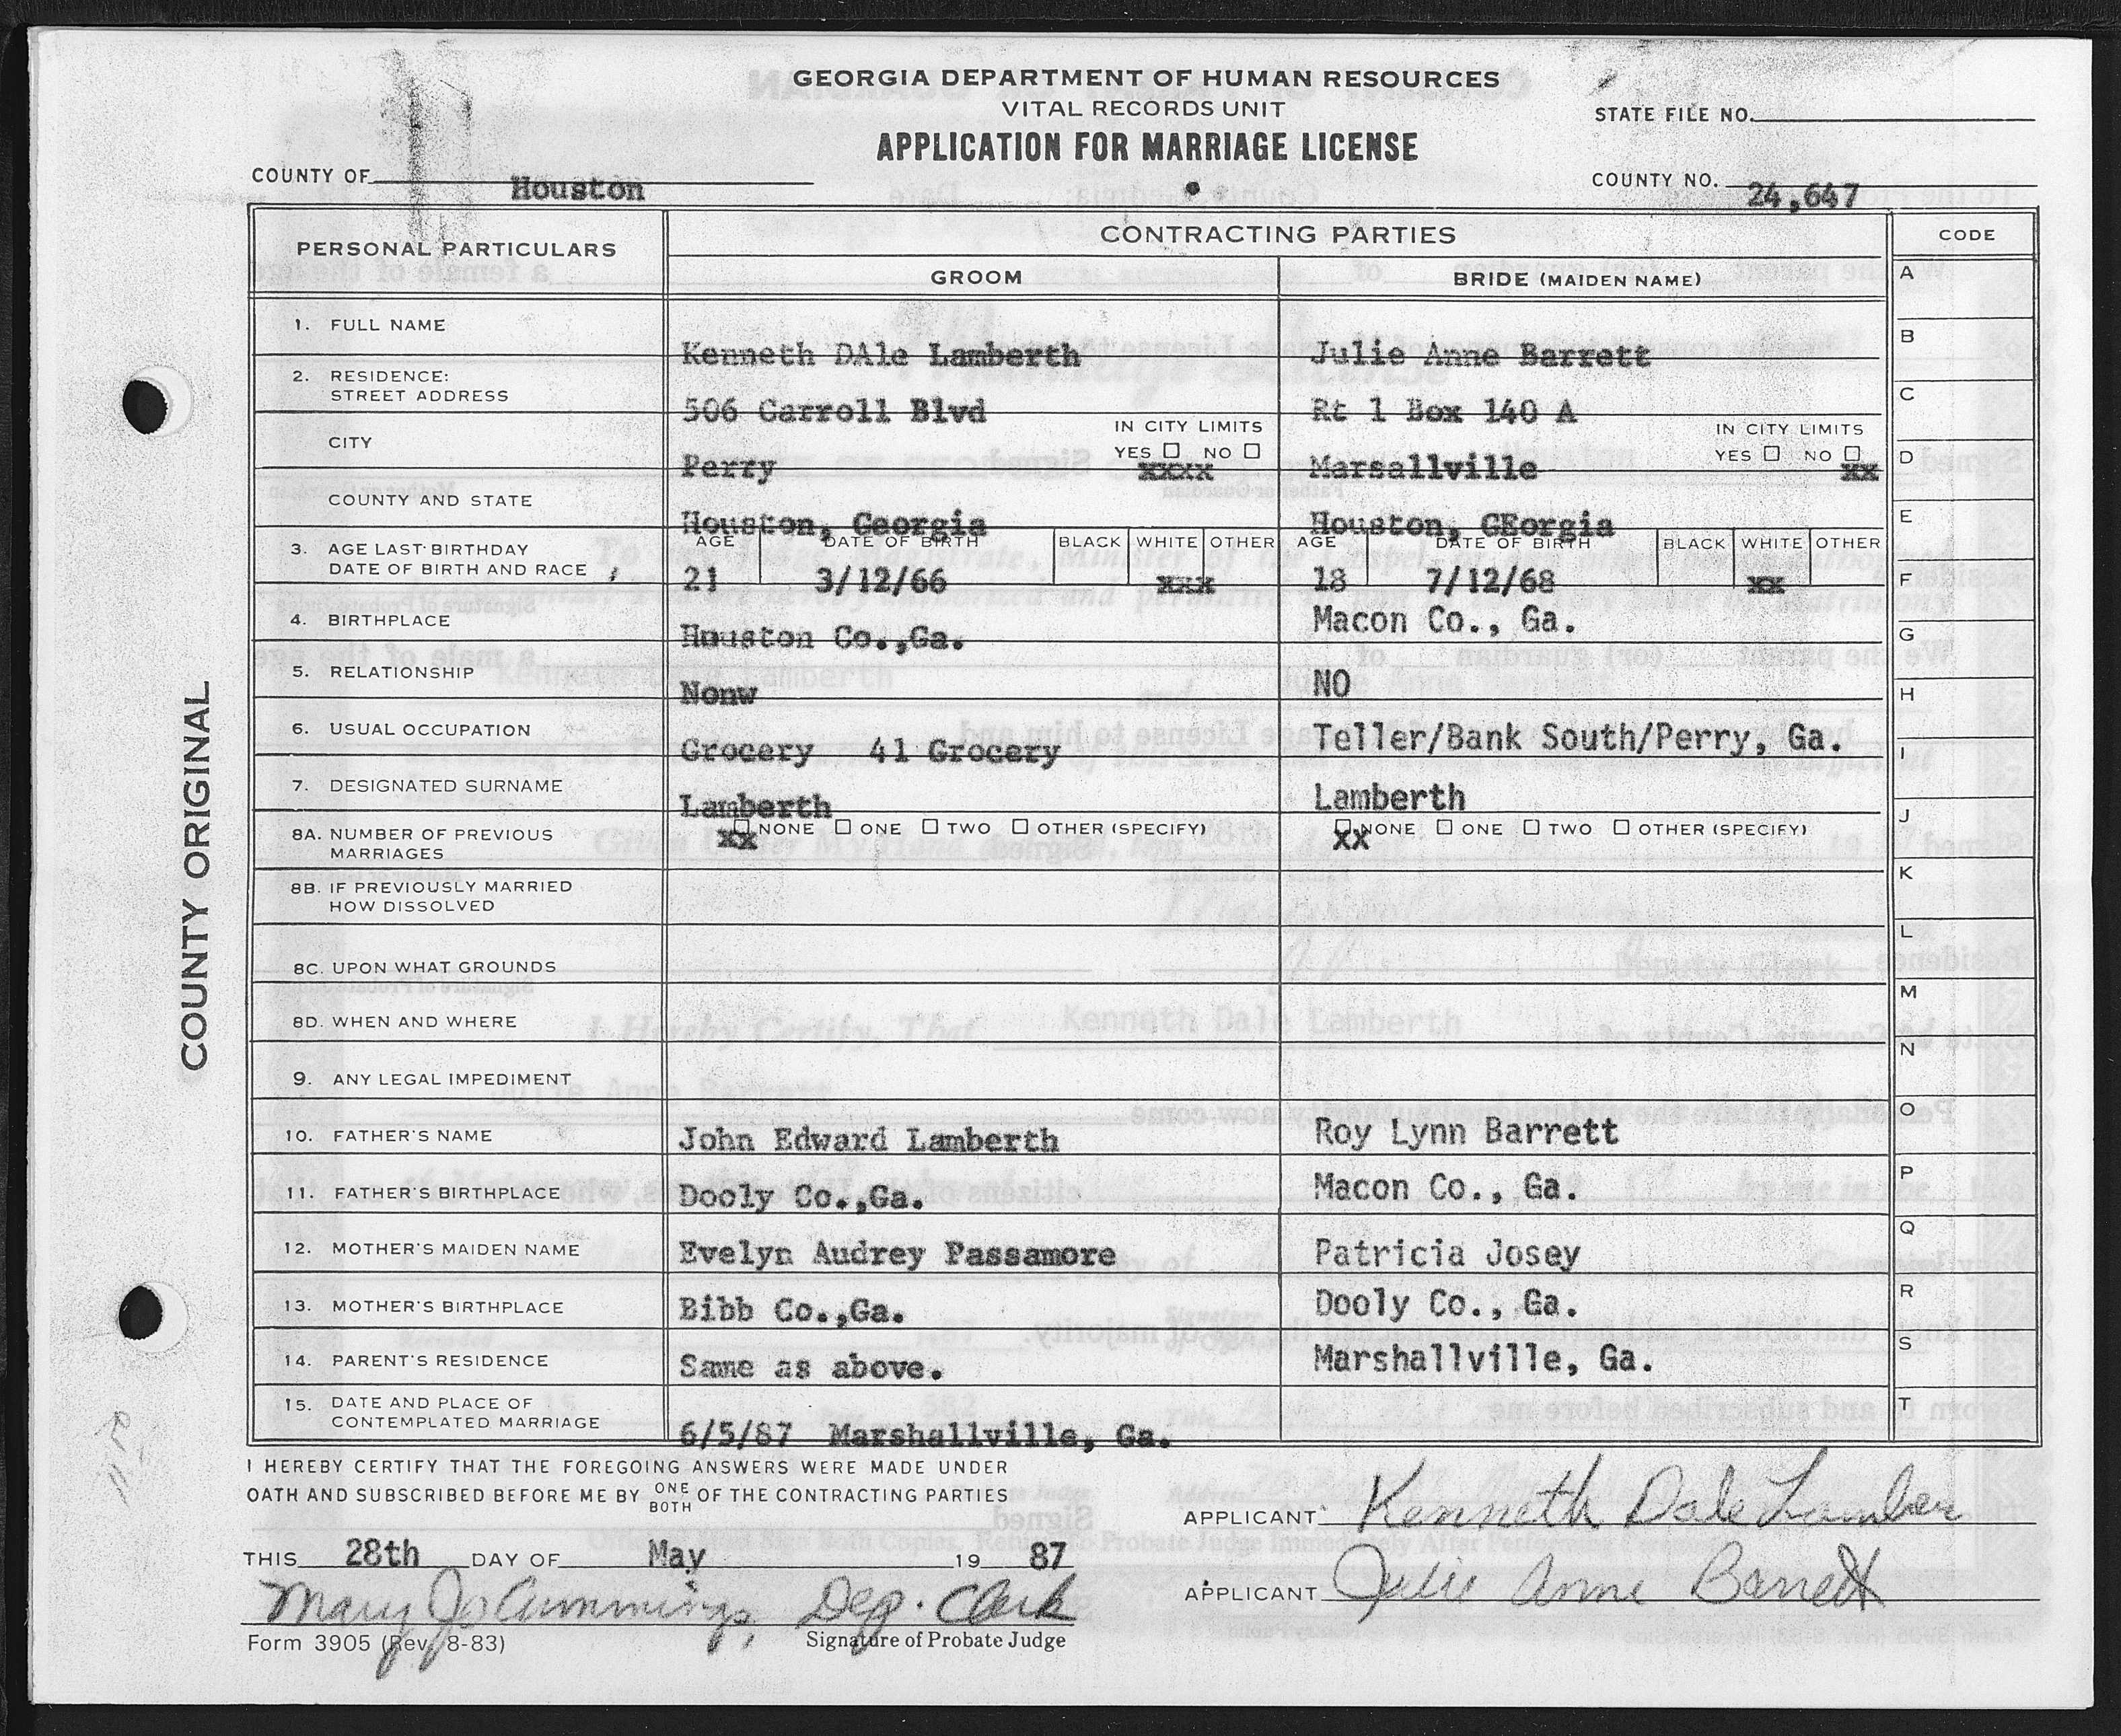 GEORGIA DEPARTMENT OF HUMAN RESOURCES
VITAL RECORDS UNIT
APPLICATION FOR MARRIAGE LICENSE
STATE FILE NO.
COUNTY OF Houston
COUNTY NO. 24,647
PERSONAL PARTICULARS CONTRACTING PARTIES CODE
GROOM BRIDE (MAIDEN NAME)
A
1. FULL NAME Kenneth DAle Lamberth Julie Anne Barrett B
2. RESIDENCE: STREET ADDRESS 506 Carroll Blvd Rt 1 Box 140 A C
CITY Perry IN CITY LIMITS YES ☐ NO ☐ xxxx Marsallville IN CITY LIMITS YES ☐ NO ☐ xx D
COUNTY AND STATE Houston, Georgia Houston, GEorgia E
3. AGE LAST BIRTHDAY DATE OF BIRTH AND RACE AGE DATE OF BIRTH BLACK WHITE OTHER AGE DATE OF BIRTH BLACK WHITE OTHER
21 3/12/66 xxx 18 7/12/68 xx F
4. BIRTHPLACE Houston Co.,Ga. Macon Co., Ga. G
5. RELATIONSHIP Nonw NO H
6. USUAL OCCUPATION Grocery 41 Grocery Teller/Bank South/Perry, Ga. I
7. DESIGNATED SURNAME Lamberth Lamberth J
8A. NUMBER OF PREVIOUS MARRIAGES xx ☐ NONE ☐ ONE ☐ TWO ☐ OTHER (SPECIFY) xx ☐ NONE ☐ ONE ☐ TWO ☐ OTHER (SPECIFY)
K
8B. IF PREVIOUSLY MARRIED HOW DISSOLVED
L
8C. UPON WHAT GROUNDS
M
8D. WHEN AND WHERE
N
9. ANY LEGAL IMPEDIMENT
O
10. FATHER'S NAME John Edward Lamberth Roy Lynn Barrett
P
11. FATHER'S BIRTHPLACE Dooly Co.,Ga. Macon Co., Ga.
Q
12. MOTHER'S MAIDEN NAME Evelyn Audrey Passamore Patricia Josey
R
13. MOTHER'S BIRTHPLACE Bibb Co.,Ga. Dooly Co., Ga.
S
14. PARENT'S RESIDENCE Same as above. Marshallville, Ga.
T
15. DATE AND PLACE OF CONTEMPLATED MARRIAGE 6/5/87 Marshallville, Ga.
COUNTY ORIGINAL
I HEREBY CERTIFY THAT THE FOREGOING ANSWERS WERE MADE UNDER
OATH AND SUBSCRIBED BEFORE ME BY ONE BOTH OF THE CONTRACTING PARTIES
APPLICANT Kenneth Dale Lamber
THIS 28th DAY OF May 19 87
APPLICANT Julie Anne Barrett
Mary Jo Cummings, Dep. Clerk
Form 3905 (Rev. 8-83) Signature of Probate Judge